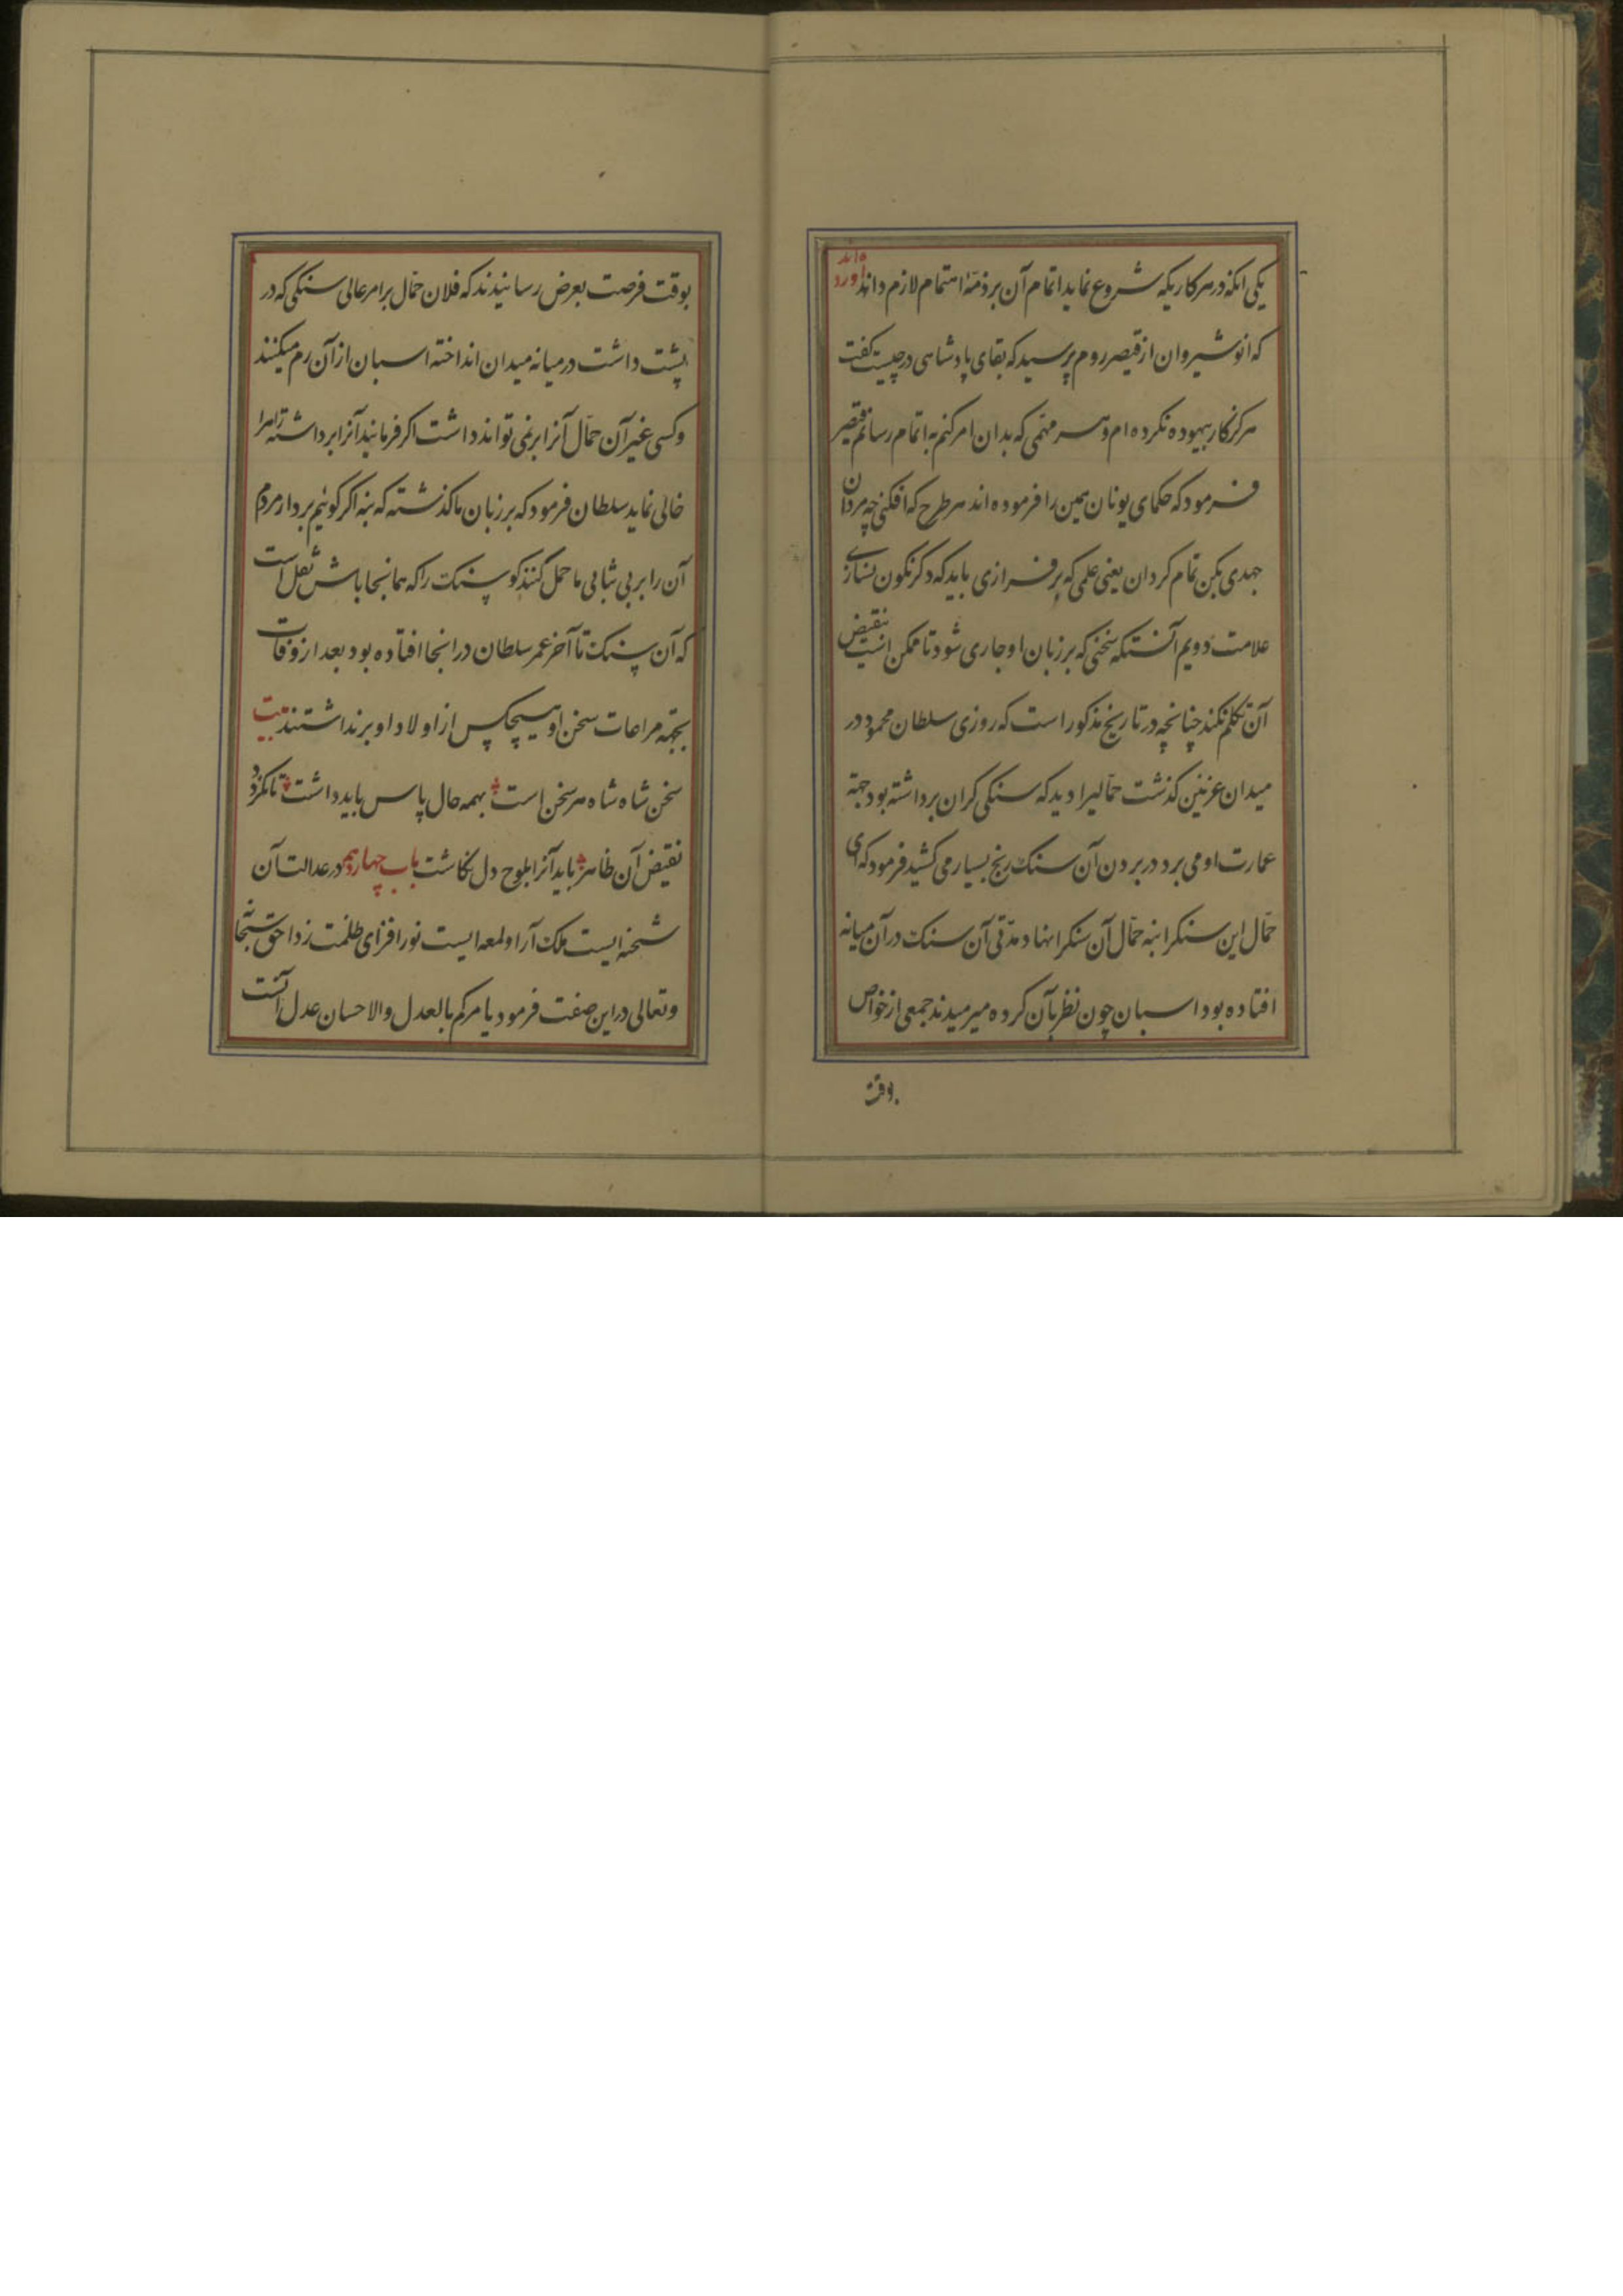 یکی انکه در هر کاریکه شروع نماید اتمام آن بر ذمّه اهتمام لازم داند آورده اند
که انوشیروان از قیصر روم پرسید که بقای پادشاهی در چیست گفت
هرگز کار بیهوده نکرده ام و هر مهمّی که بدان امر کنم به اتمام رسانم قیصر
فرمود که حکمای یونان همین را فرموده اند هر طرح که افکنی چه مردان
جهدی بکن تمام گردان یعنی علمی که برفرازی باید که دگر نگون نسازی
علامت دویم آنستکه سخنی که بر زبان او جاری شود تا ممکن است نقیض
آن تکلم نکند چنانچه در تاریخ مذکور است که روزی سلطان محمود در
میدان غزنین کذشت حمّالیرا دید که سنگی کران برداشته بود جهة
عمارت او می برد در بردن آن سنک رنج بسیار می کشید فرمود که ای
حمّال این سنکرا بنه حمّال آن سنکرا نهاد مدّتی آن سنک در آن میانه
افتاده بود اسبان چون نظر بآن کرده میرمیدند جمعی از خواص
بوقت
بوقت فرصت بعرض رسانیدند که فلان حمّال بر امر عالی سنکی که در
پشت داشت در میانه میدان انداخته اسبان از آن رم میکنند
وکسی غیر آن حمّال آنرا بر نمی تواند داشت اکر فرمانید آنرا برداشته راهرا
خالی نماید سلطان فرمود که بر زبان ما کذشته که بنه اکر کوئیم بردار مردم
آن را بر بی ثباتی ما حمل کنند کو سنک را که همانجا باش نقل است
که آن سنک تا آخر عمر سلطان در انجا افتاده بود بعد از وفات
بجهة مراعات سخن او هیچکس از اولاد او برنداشتند بیت
سخن شاه شاه هر سخن است بهمه حال پاس باید داشت تا نکردد
نقیض آن ظاهر باید آنرا بلوح دل نکاشت باب چهاردهم در عدالت آن
شحنه ایست ملک آرا ولمعه ایست نور افزای ظلمت زدا حق سبحانه
وتعالی در این صفت فرمود یا مرکم بالعدل والاحسان عدل آنست